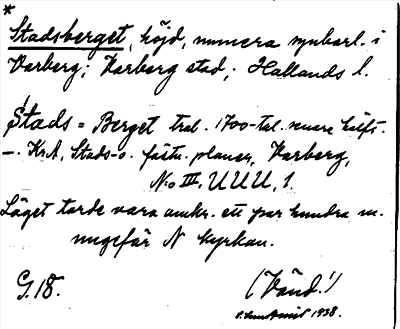 *
Stadsberget, höjd, numera synbarl. i
Varberg; Varberg stad; Hallands l.
Stads = Berget trol. 1700-tal. senare hälft.
–. KrA, Stads- o. fästn. planer, Varberg,
N:o III, UUU, 1.
Läget torde vara omkr. ett par hundra m.
ungefär N kyrkan.
G. 18.
(Vänd!)
1938.